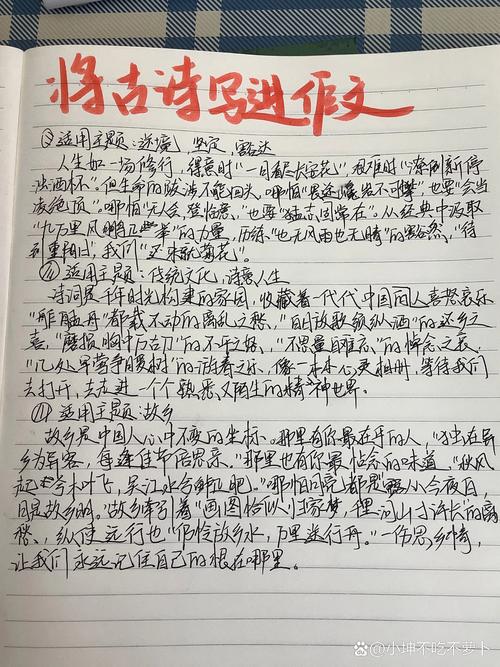 将古诗写进作文
① 适用主题:逆境 坚定 豁达
人生如一场修行,得意时"一日看尽长安花",艰难时"潦倒新停
浊酒杯"。但生命的跋涉不能回头,哪怕"畏途巉岩不可攀",也要"会当
凌绝顶"。哪怕"无人会,登临意",也要"猛志固常在"。从经典中汲取
"九万里风鹏正举"的力量,历练"也无风雨也无晴"的豁然,"待
到重阳日,我们"还来就菊花"。
适用主题:传统文化、诗意人生
诗词是千年时光构建的家园,收藏着一代代中国人喜怒哀乐
"舴艋舟"都载不动的离乱之愁,"白日放歌须纵酒"的还乡之
喜,"磨损胸中万古刀"的不平之怒、"不思量自难忘"的悼念之哀、
"几处早莺争暖树"的 之乐,像一本本心灵相册,等待我们
去打开,去走进一个个熟悉又陌生的精神世界。
适用主题:故乡
故乡是中国人心中不变的坐标。那里有你最在乎的人,"独在异
乡为异客,每逢佳节倍思亲。"那里也有你最惦念的味道。"秋风
起兮木叶飞,吴江水兮鲈正肥。"哪怕 都是"露从今夜白,
月是故乡明。"故乡牵引着"画图恰似归家梦,千里河山寸许长"的离
愁,纵使远行也"仍怜故乡水,万里送行舟。"一份思乡情,
让我们永远记住自己的根在哪里。
@小坤不吃不萝卜